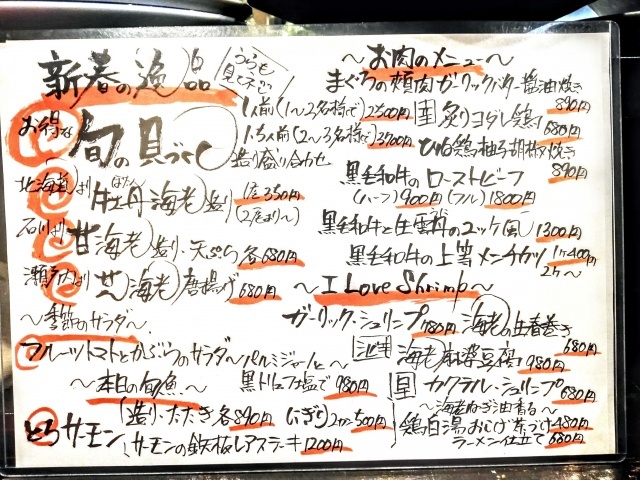 新春の逸品
うらも見て下さい
お得な
旬の貝づくし
1人前(1〜2名様で)2500円
1.5人前(2〜3名様で)3700円
造り盛り合わせ
北海道より
牡丹海老造り
ぼたん
1尾350円
(2尾より〜)
石川より
甘海老造り・天ぷら各680円
瀬戸内より
芝海老唐揚げ680円
〜季節のサラダ〜
フルーツトマトとかぶらのサラダ〜パルミジャーノと
黒トリュフ塩で980円
〜本日の旬魚〜
とろサーモン
造り・たたき各890円 にぎり2カン500円
サーモンの鉄板レアステーキ1200円
〜お肉のメニュー〜
まぐろの頬肉ガーリックバター醤油焼き
890円
炙りヨダレ鶏680円
ひね鶏柚子胡椒焼き
890円
黒毛和牛のローストビーフ
(ハーフ)900円(フル)1800円
黒毛和牛と生雲丹のユッケ風1300円
黒毛和牛の上等メンチカツ1ケ400円
2ケ〜
〜I Love Shrimp〜
ガーリック・シュリンプ780円
海老の生春巻き
680円
海老麻婆豆腐980円
カクテル・シュリンプ680円
〜海老ねぎ油香る〜
鶏白湯おこげ茶づけ480円
ラーメン仕立て680円